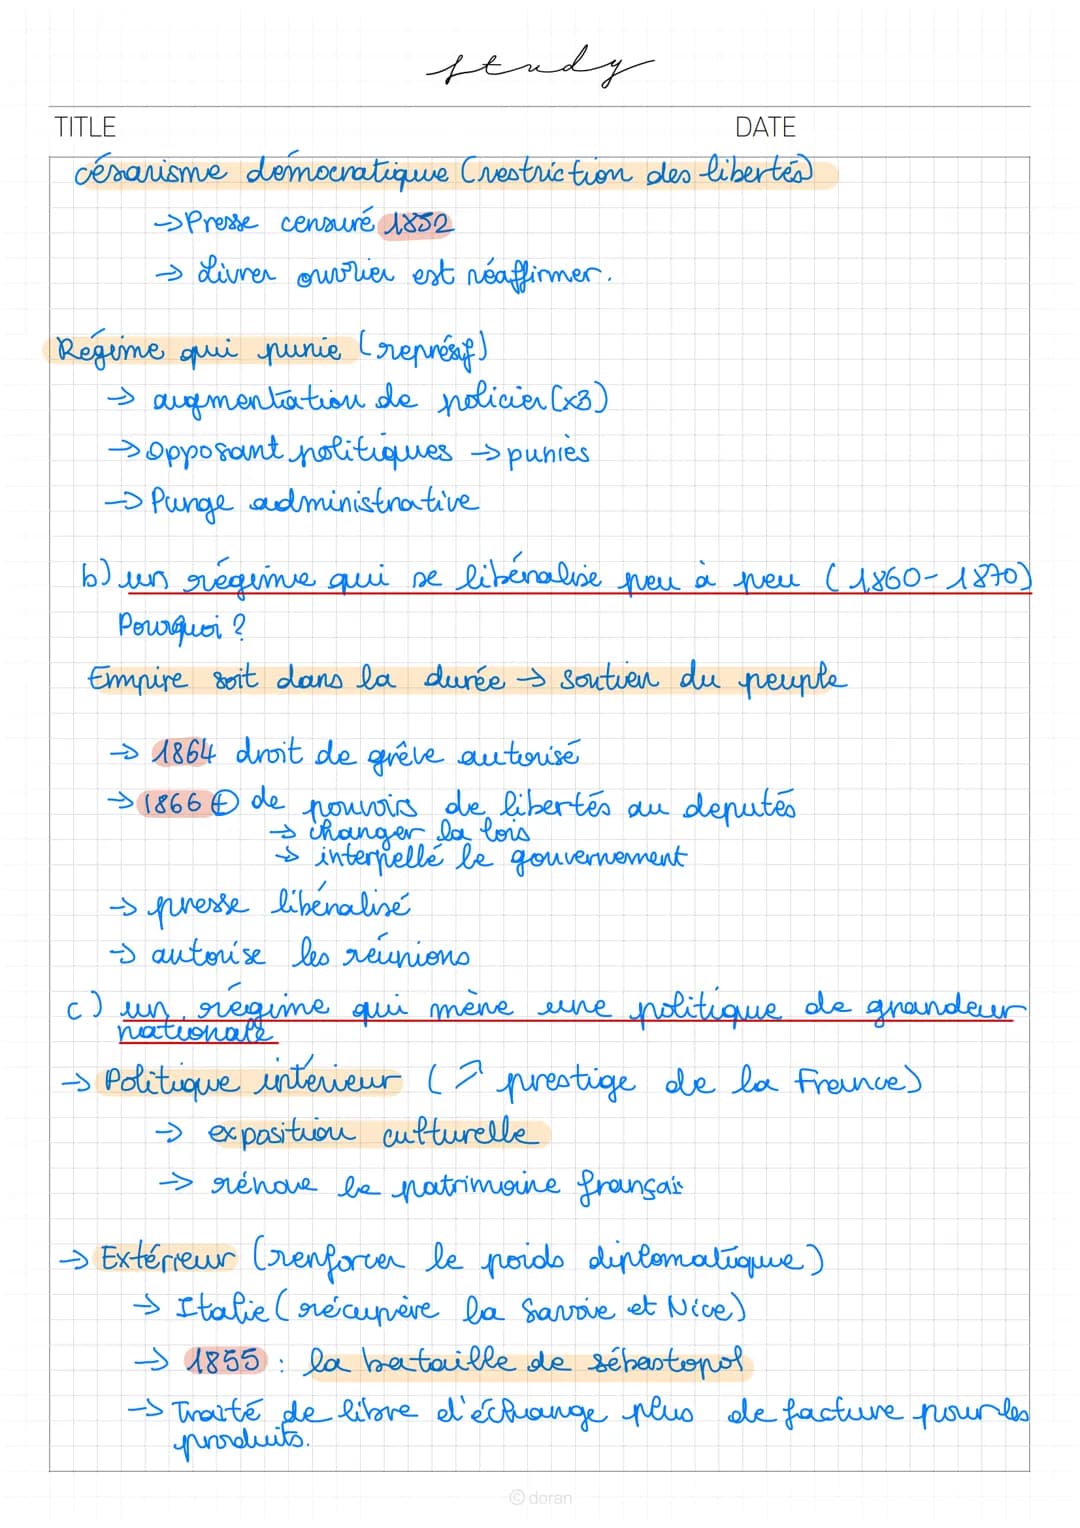 study
TITLE DATE
césarisme démocratique (restriction des libertés)
→ Presse censuré 1852
→ Livrer ouvrier est réaffirmer.
Régime qui punie (represif)
→ augmentation de policier (x3)
→ Opposant politiques → puniès
→ Purge administrative
b) un régime qui se libéralise peu à peu (1860-1870)
Pourquoi ?
Empire soit dans la durée → soutien du peuple
→ 1864 droit de grêve autorisé
→ 1866 ⊕ de pouvoirs de libertés au deputés
→ changer la lois
→ interpellé le gouvernement
→ presse libéralisé
→ autorise les réunions
c) un régime qui mène une politique de grandeur
nationale
→ Politique intérieur (↗ prestige de la France)
→ exposition culturelle
→ rénove le patrimoine français
→ Extérieur (renforcer le poids diplomatique)
→ Italie (récupère la Savoie et Nice)
→ 1855 : la bataille de sébastopol
→ Traité de libre d'échange plus de facture pour les
produits.
© doran